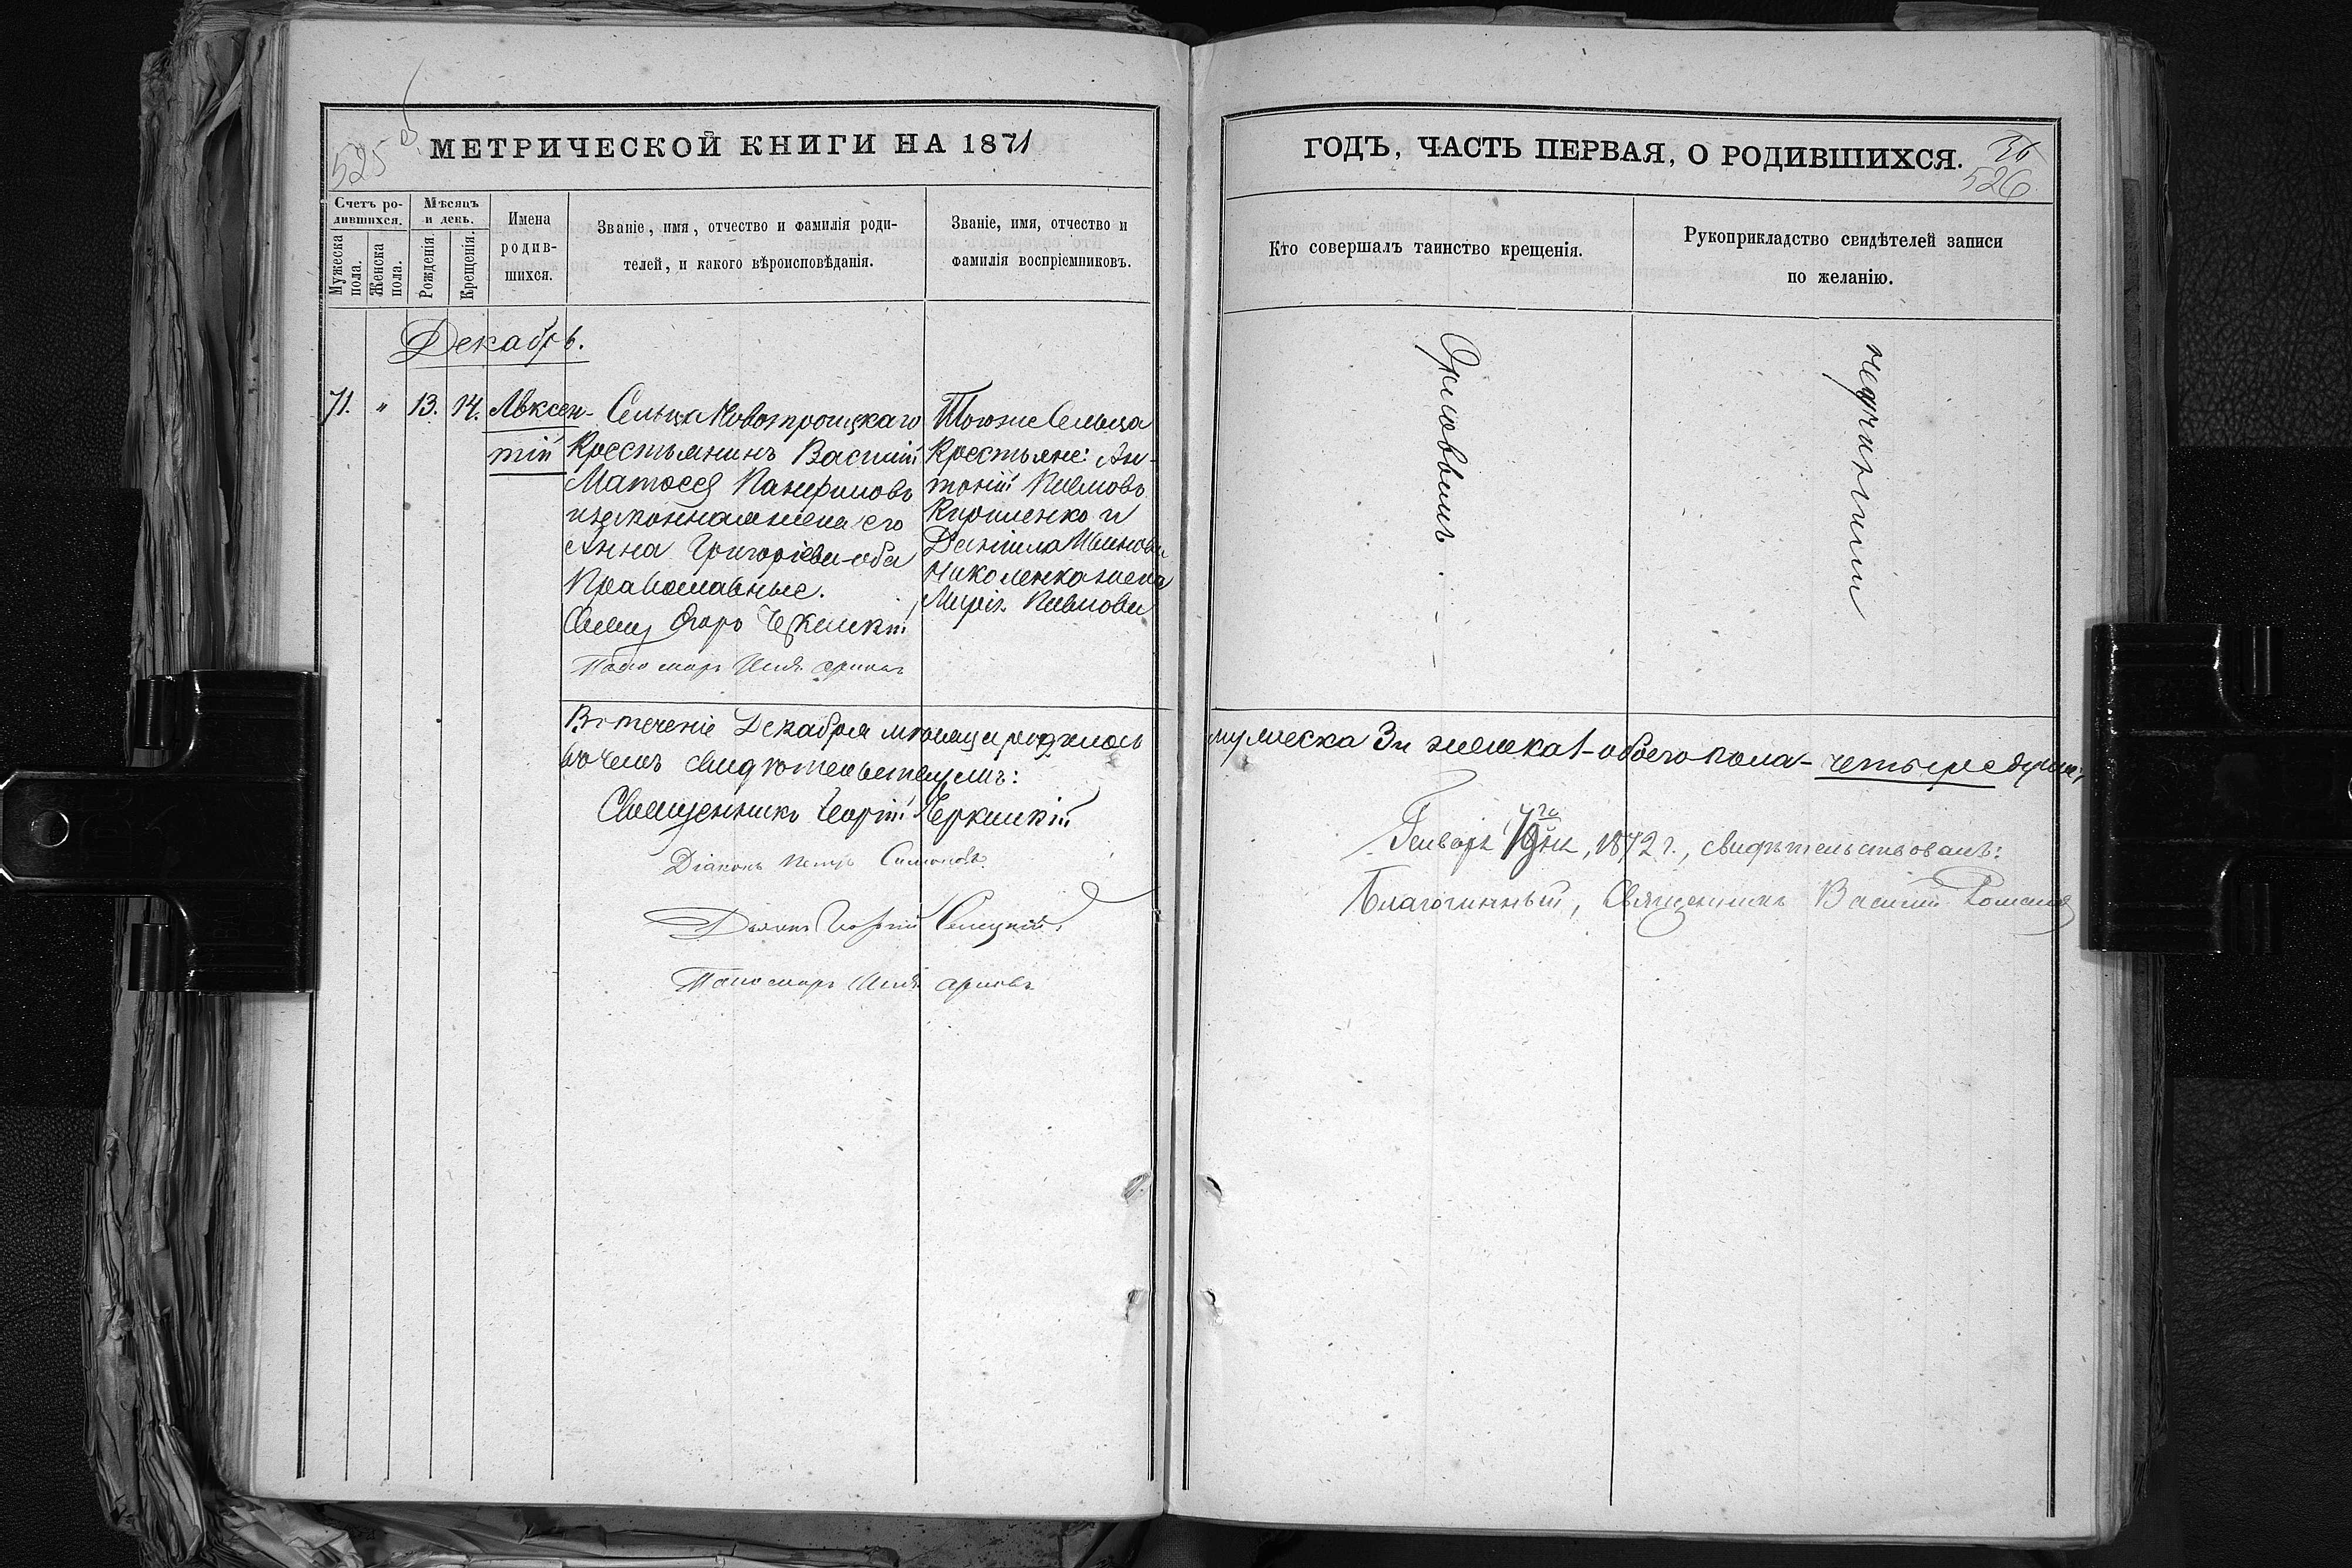 525 об
МЕТРИЧЕСКОЙ КНИГИ НА 1871
Счетъ ро-
дившихся.
Мужеска
пола.
Женска
пола.
Мѣсяцъ
и день.
Рожденія.
Крещенія.
Имена
родив-
шихся.
Званіе, имя, отчество и фамилія роди-
телей, и какого вѣроисповѣданія.
Званіе, имя, отчество и
фамилія воспріемниковъ.
Декабрь.
71. " 13. 14. Авксен-
тій
Сельца Новотроицкаго
Крестьянинъ Василій
Матвеев Панфиловъ
и законная жена его
Анна Григоріева оба
Православные.
Свящ
Пономарь
Тогоже Сельца
Крестьяне: Ан-
тоній Павловъ
Кириленко и
Даніила Иванова
Николенка жена
Марія Павлова
Въ теченіе Декабря мѣсяца родилось
въ чемъ свидѣтельствуемъ:
Священникъ Георгій Черкаскій
Діаконъ Петръ Симоновъ.
Дьякъ Георгій
Пономарь
ГОДЪ, ЧАСТЬ ПЕРВАЯ, О РОДИВШИХСЯ.
526
Кто совершалъ таинство крещенія.
Рукоприкладство свидѣтелей записи
по желанію.
мужеска 3 и женска 1 - обоего пола - четыре души;
Генваря 1872 г., свидѣтельствовалъ:
Благочинный, Священникъ Василій